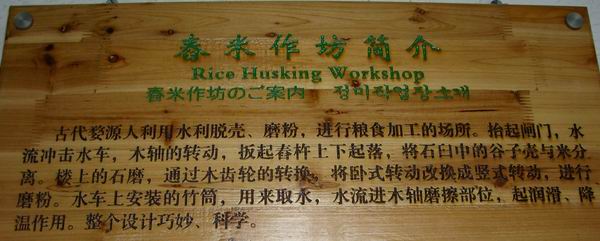 舂米作坊简介
Rice Husking Workshop
舂米作坊のご案内 정미작업장소개
古代婺源人利用水利脱壳、磨粉，进行粮食加工的场所。抬起闸门，水
流冲击水车，木轴的转动，扳起舂杵上下起落，将石臼中的谷子壳与米分
离。楼上的石磨，通过木齿轮的转换，将卧式转动改换成竖式转动，进行
磨粉。水车上安装的竹筒，用来取水，水流进木轴磨擦部位，起润滑、降
温作用。整个设计巧妙、科学。